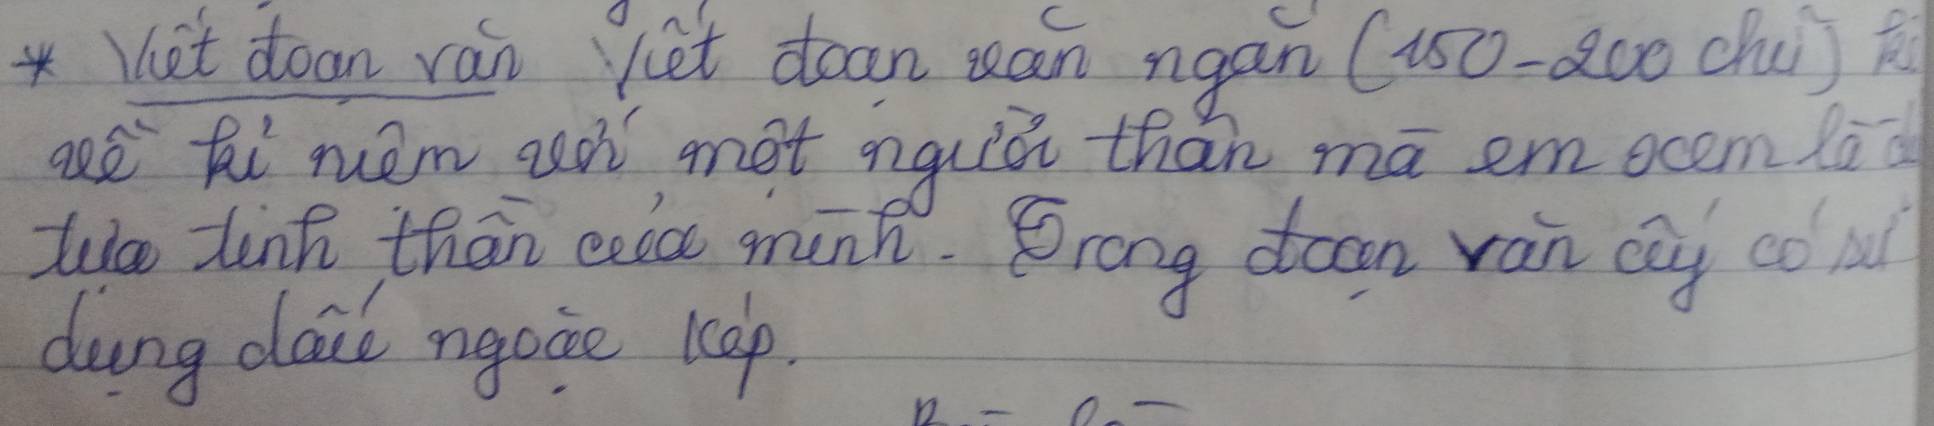 * Viết đoạn văn Viết đoạn văn ngắn (150-200 chữ) kể
về kỉ niệm với một người thân mà em xem là
tựa tinh thần của mình. Trong đoạn văn ấy có sử
dụng dấu ngoặc kép.